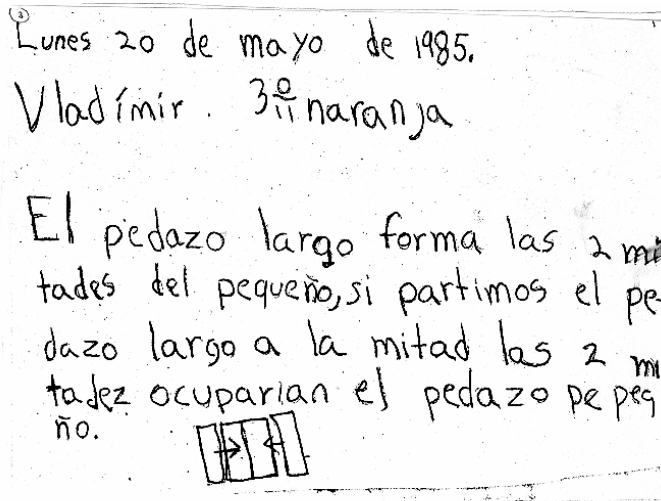 ③
Lunes 20 de mayo de 1985.
Vladímir. 3º/11 naranja
El pedazo largo forma las 2 mi
tades del pequeño, si partimos el pe
dazo largo a la mitad las 2 mi
tadez ocuparian el pedazo pe peq
ño.